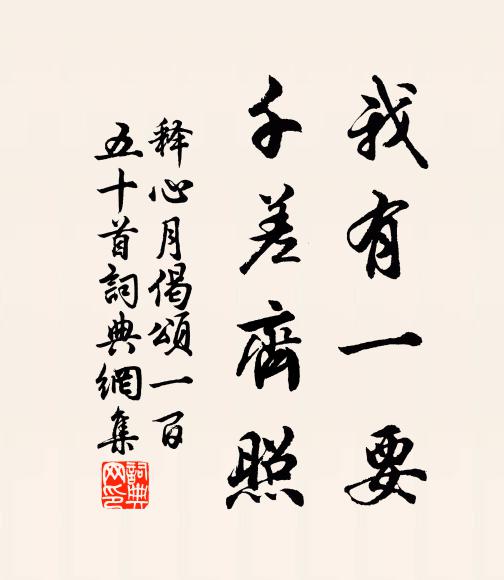 我有一要
千差齊照
释心月偈頌一百
五十首詞典網集
詞典
网印